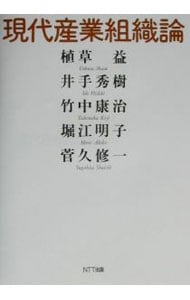 現代産業組織論
植草 益
Uekusa Masu
井手秀樹
Ide Hideki
竹中康治
Takenaka Koji
堀江明子
Horie Akiko
菅久修一
Sugahisa Shuichi
NTT出版